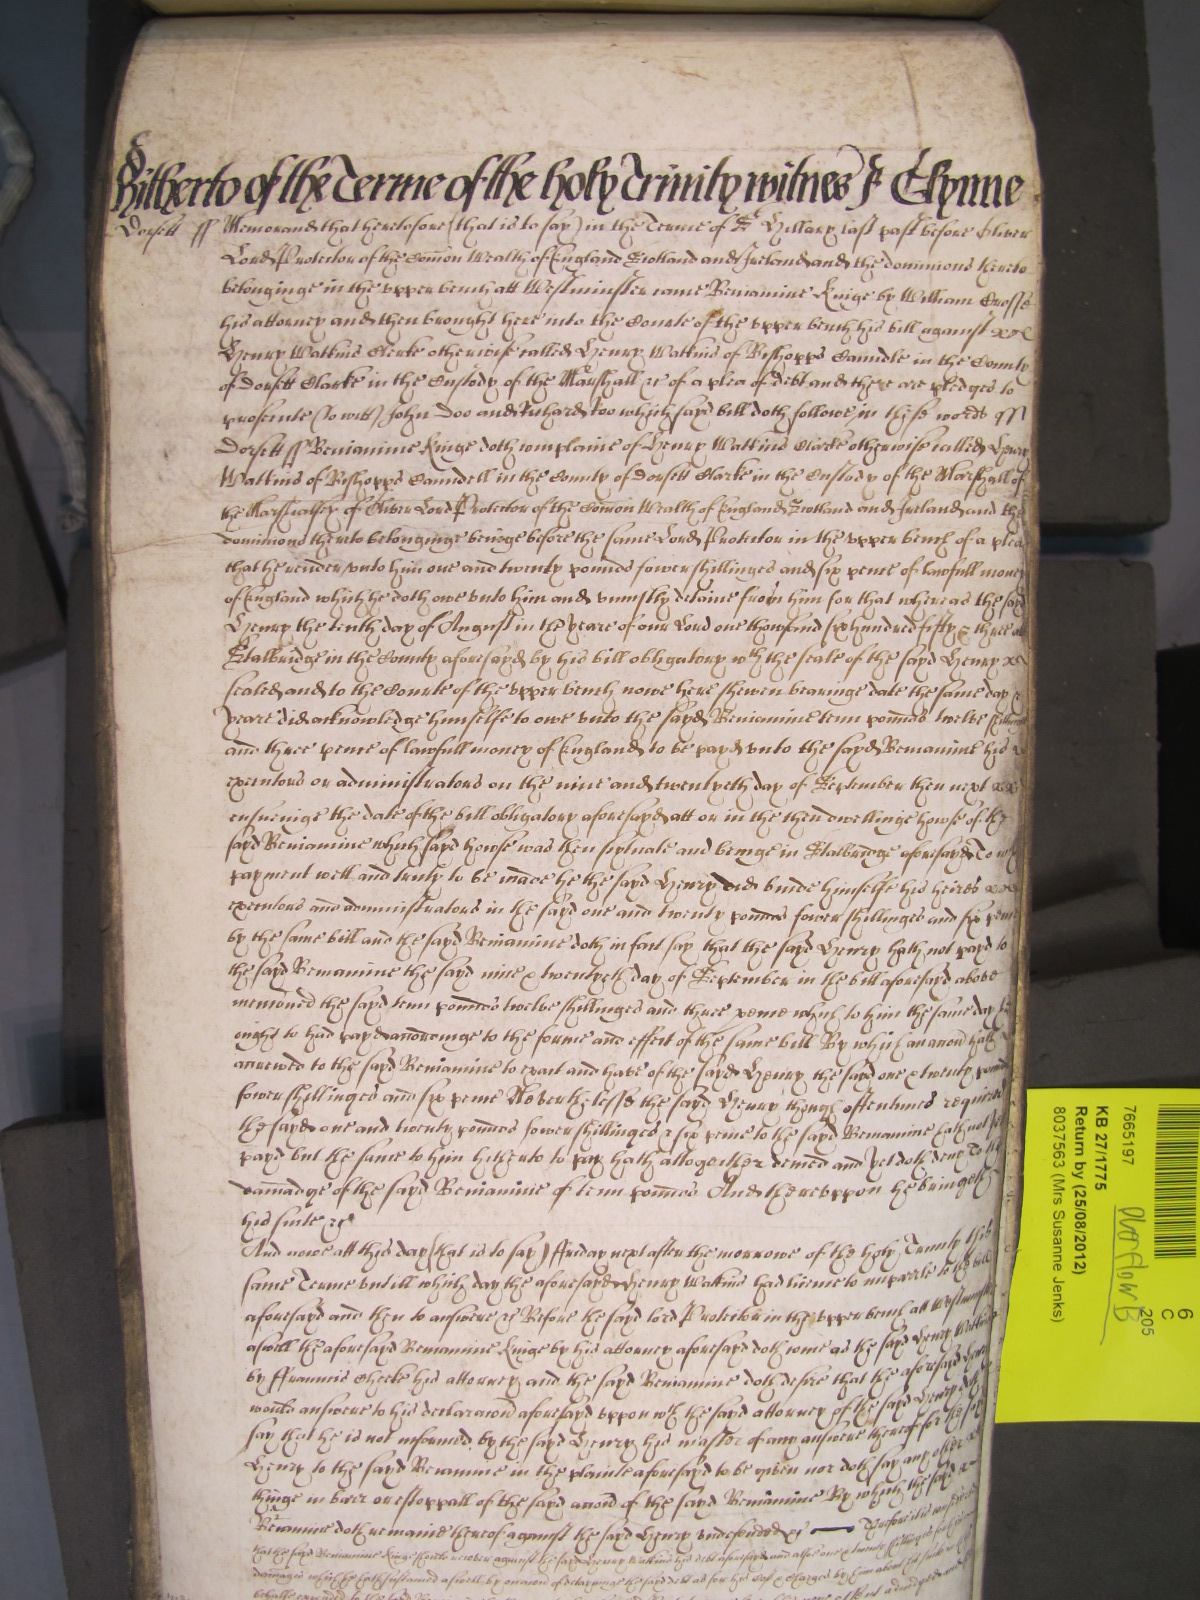 Hitherto of the Terme of the holy Trinity witnes J Glynne
Dorsett ss Memorand that heretofore (that is to say) in the Terme of St Hillary last past before Oliver
Lord Protector of the Comon Wealth of England Scotland and Ireland and the dominions thereto
belonginge in the upper bench att Westminster came Beniamine Kinge by William Crosse
his attorney and then brought here into the Courte of the upper bench his bill against
Henry Watkins Clerke otherwise called Henry Watkins of Bishopps Caundle in the County
of Dorsett Clarke in the Custody of the Marshall &c of a plea of debt and there are pledges to
prosecute (to witt) John Doo and Richard Roo which sayd bill doth followe in these words ss
Dorsett ss Beniamine Kinge doth complaine of Henry Watkins Clarke otherwise called Henry
Watkins of Bishopps Caundell in the County of Dorsett Clarke in the Custody of the Marshall of
the Marshalsey of Oliver Lord Protector of the Comon Wealth of England Scotland and Ireland and the
dominions thereto belonginge beinge before the same Lord Protector in the upper bench of a plea
that he render unto him one and twenty pounds fower shillinges and six pence of lawfull money
of England which he doth owe unto him and uniustly detaine from him for that whereas the sayd
Henry the tenth day of August in the yeare of our Lord one thowsand six hundred fifty & three at
Stalbridge in the County aforesayd by his bill obligatory wth the seale of the sayd Henry
sealed and to the Courte of the upper bench nowe here shewen bearinge date the same day &
yeare did acknowledge himselfe to owe unto the sayd Beniamine tenn pounds twelve shillinges
and three pence of lawfull money of England to be payd unto the sayd Beniamine his
executors or administrators on the nine and twentyeth day of September then next
ensueinge the date of the bill obligatory aforesayd att or in the then dwellinge howse of the
sayd Beniamine which sayd house was then scituate and beinge in Stalbridge aforesayd To wch
payment well and truly to be made he the sayd Henry did binde himselfe his heires
executors and administrators in the sayd one and twenty pounds fower shillinges and six pence
by the same bill and the sayd Beniamine doth in fact say that the sayd Henry hath not payd to
the sayd Beniamine the sayd nine & twentyeth day of September in the bill aforesayd above
mencioned the sayd tenn pounds twelve shillinges and three pence which to him the same day he
ought to had payd accordinge to the forme and effect of the same bill By which an accion hath
accrewed to the sayd Beniamine to exact and have of the sayd Henry the sayd one & twenty pounds
fower shillinges and six pence Neverthelesse the sayd Henry though oftentimes required
the sayd one and twenty pounds fower shillinges & six pence to the sayd Beniamine hath not
payd but the same to him hitherto to pay hath altogeither denied and yet doth deny To the
damadge of the sayd Beniamine of tenn pounds And thereuppon he bringeth
his suite &c
And nowe att this day (that is to say) ffriday next after the morrowe of the holy Trinity this
same Terme untill which day the aforesayd Henry Watkins had licence to imparle to the bill
aforesayd and then to answere &c Before the sayd lord Protector in the upper bench att Westminster
aswell the aforesayd Beniamine Kinge by his attorney aforesayd doth come as the sayd Henry Watkins
by ffrauncis Cheeke his attorney and the sayd Beniamine doth desire that the aforesayd Henry
would answere to his declaracion aforesayd uppon wch the sayd attorney of the sayd Henry doth
say that he is not informed by the sayd Henry his master of any answere thereof for the sayd
Henry to the sayd Beniamine in the plainte aforesayd to be given nor doth say any other
thinge in barr or estoppall of the sayd accion of the sayd Beniamine By which the sayd
Beniamine doth remaine thereof against the sayd Henry undefended &c Therefore it is considered
that the sayd Beniamine Kinge should recover against the sayd Henry Watkins his debt aforesayd and alsoe one & twenty shillinges
damages which he hath sustained aswell by occasion of detayninge the sayd debt as for his costs & charges by him about his suite
behalfe
7665197
KB 27/1775
Return by (25/08/2012)
8037563 (Mrs Susanne Jenks)
6
C
205